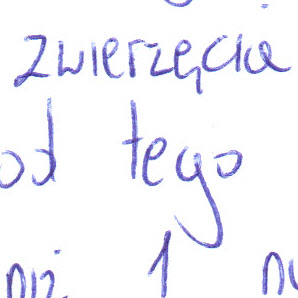 zwierzęcia
od tego
niż 1